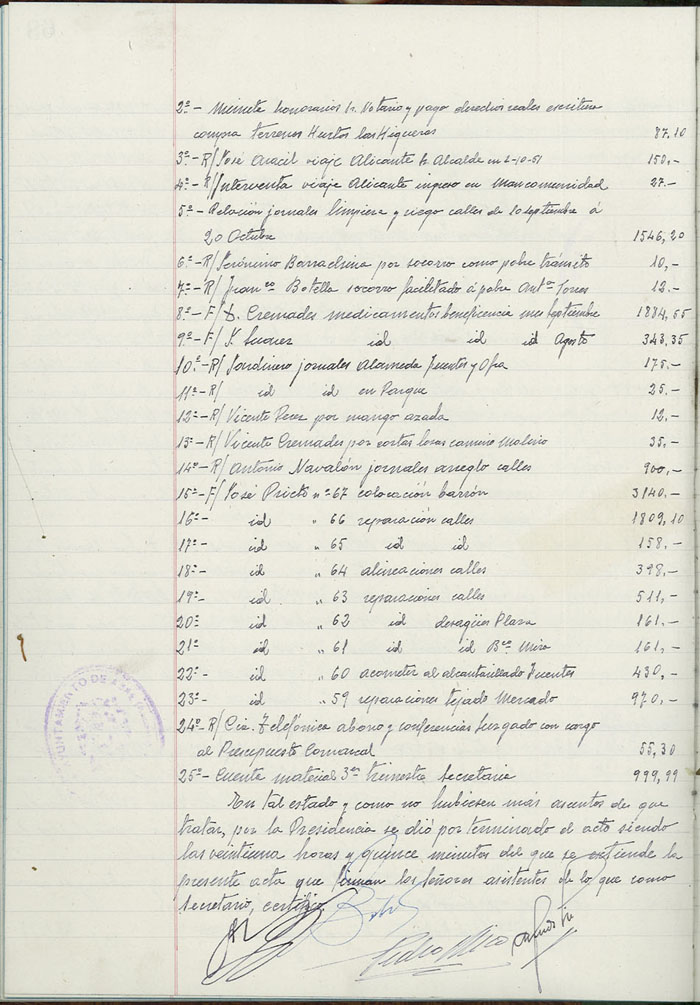 2º- Minuta honorarios Sr. Notario y pago derechos reales escritura
compra terrenos Huertos las Higueras 87,10
3º- R/ José Aracil viaje Alicante Sr. Alcalde en 2-10-51 150,-
4º- R/ Interventa viaje Alicante ingreso en Mancomunidad 27.-
5º- Relación jornales limpieza y riego calles de 20 septiembre á
20 Octubre 1546,20
6º- R/ Gerónimo Barrachina por socorro como pobre tránsito 10,-
7º- R/ Juan Botella socorro facilitado á pobre Antº Torres 12.-
8º- F/ D. Cremades medicamentos beneficencia mes Septiembre 1884,65
9º- F/ J. Suarez id id id Agosto 343,35
10º- R/ Jardinero jornales Alameda Fuentes y 175.-
11º- R/ id id en Parque 25.-
12º- R/ Vicente Perez por mango azada 12,-
13º- R/ Vicente Cremades por cortar losas camino Molino 35,-
14º- R/ Antonio Navalón jornales arreglo calles 900,-
15º- F/ José Prieto nº 67 colocación barrón 3140.-
16º- id " 66 reparación calles 1809,10
17º- id " 65 id id 158.-
18º- id " 64 alineaciones calles 398,-
19º- id " 63 reparaciones calles 511,-
20º id " 62 id desagües Plaza 161.-
21º id " 61 id id Bco Mira 161,-
22º- id " 60 acometer al alcantarillado Fuentes 430,-
23º- id " 59 reparaciones tejado Mercado 970.-
24º- R/ Cia. Telefónica abono y conferencias Juzgado con cargo
al Presupuesto Comarcal 55,30
25º- Cuenta material 3er trimestre Secretaria 999,99
En tal estado y como no hubiesen más asuntos de que
tratar, por la Presidencia se dió por terminado el acto siendo
las veintiuna horas y quince minutos del que se extiende la
presente acta que firman los señores asistentes de lo que como
Secretario, certifico.
Pedro Mira
AYUNTAMIENTO DE